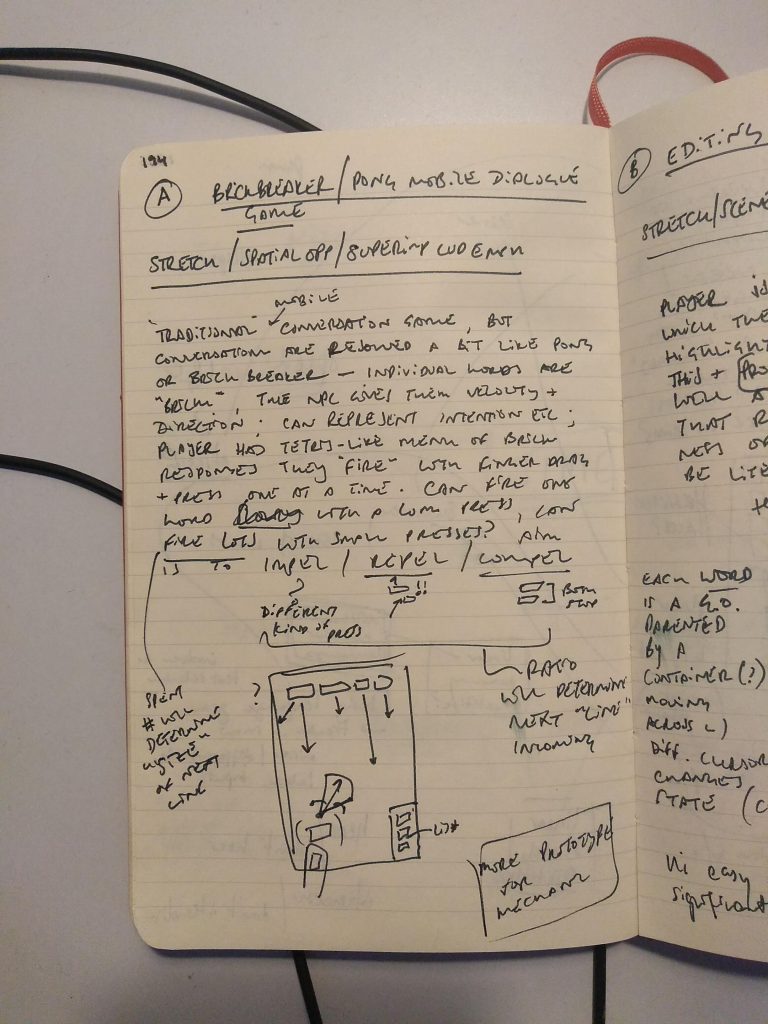 194
A BRICKBREAKER/PONG MOBILE DIALOGUE
GAME
STRETCH/SPATIAL OPP/SUPERIMP LUDEMIC
MOBILE
"TRADITIONAL" CONVERSATION GAME, BUT
CONVERSATION ARE RESOLVED A BIT LIKE PONG
OR BRICK BREAKER — INDIVIDUAL WORDS ARE
"BRICK", THE NPC GIVES THEM VELOCITY +
DIRECTION; CAN REPRESENT INTENTION ETC;
PLAYER HAS TETRIS-LIKE MENU OF BRICK
RESPONSES THEY "FIRE" WITH FINGER DRAG
+ PRESS ONE AT A TIME. CAN FIRE ONE
WORD WITH A LONG PRESS, CAN
FIRE LOTS WITH SMALL PRESSES? AIM
IS TO IMPEL / REPEL / COMPEL
?
DIFFERENT
KIND OF PRESS
!!
BOTH
STOP
RATIO
WILL DETERMINE
NEXT "LINE"
INCOMING
SPENT
# WILL
DETERMINE
"SIZE"
OF NEXT
LINE
?
LIST
MORE PROTOTYPE
FOR
MECHANIC
B EDITING
STRETCH/SCENE
PLAYER IS
WHICH THE
HIGHLIGHT
THIS +
WILL A
THAT R
NESS OF
BE LITE
EACH WORD
IS A G.O.
PARENTED
BY A
CONTAINER (?)
MOVING
ACROSS
DIFF. CURSOR
CHANGES
STATE (C
easy